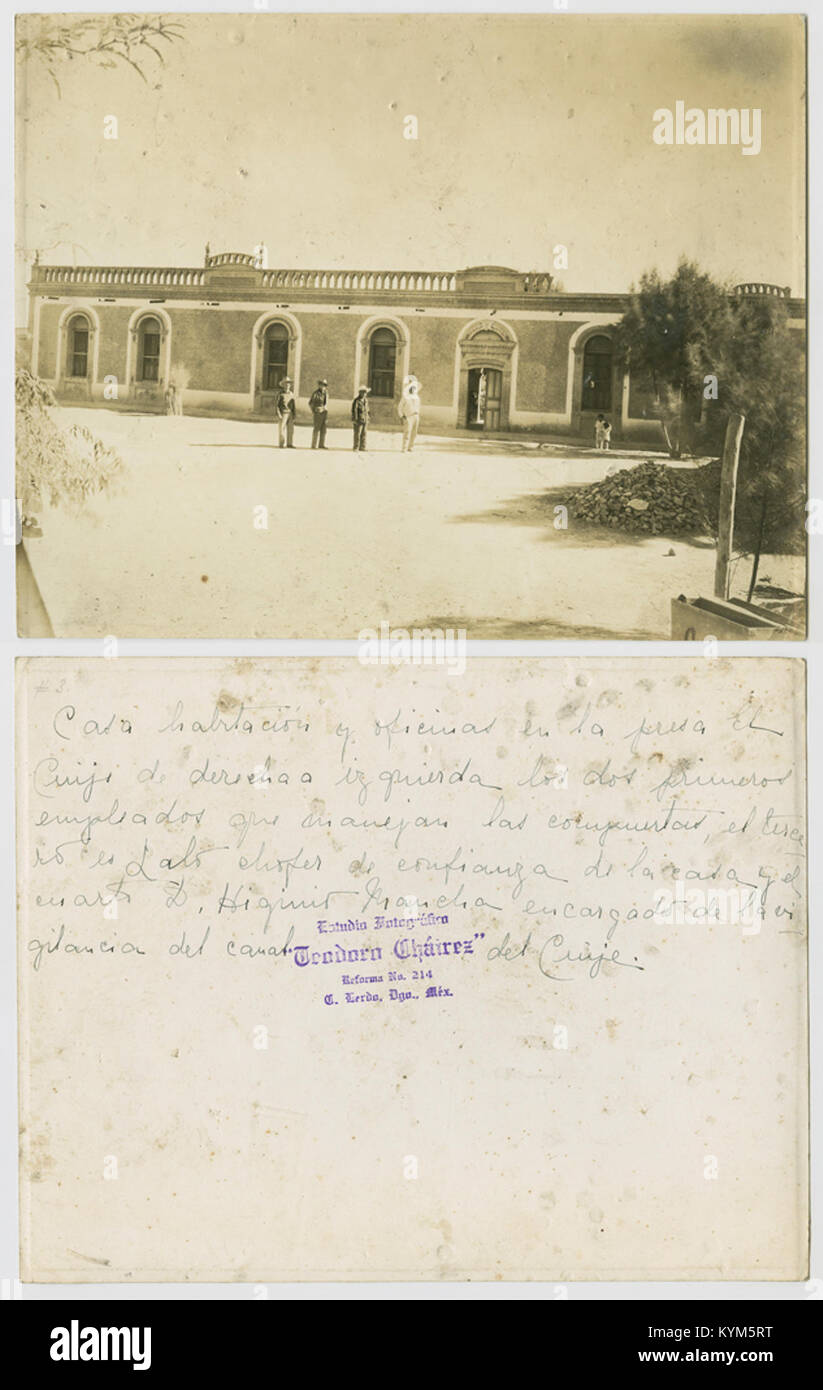 # 3
Casa habitación y oficinas en la presa el
Cuije de derecha a izquierda los dos primeros
empleados que manejan las compuertas, el terce
ro es Lalo chofer de confianza de la casa y el
cuarto D. Higinio Mancha encargado de la vi
gilancia del canal del Cuije.
Estudio Fotográfico
"Teodoro Cháirez"
Reforma No. 214
C. Lerdo, Dgo., Méx.
alamy
Image ID: KYM5RT
www.alamy.com